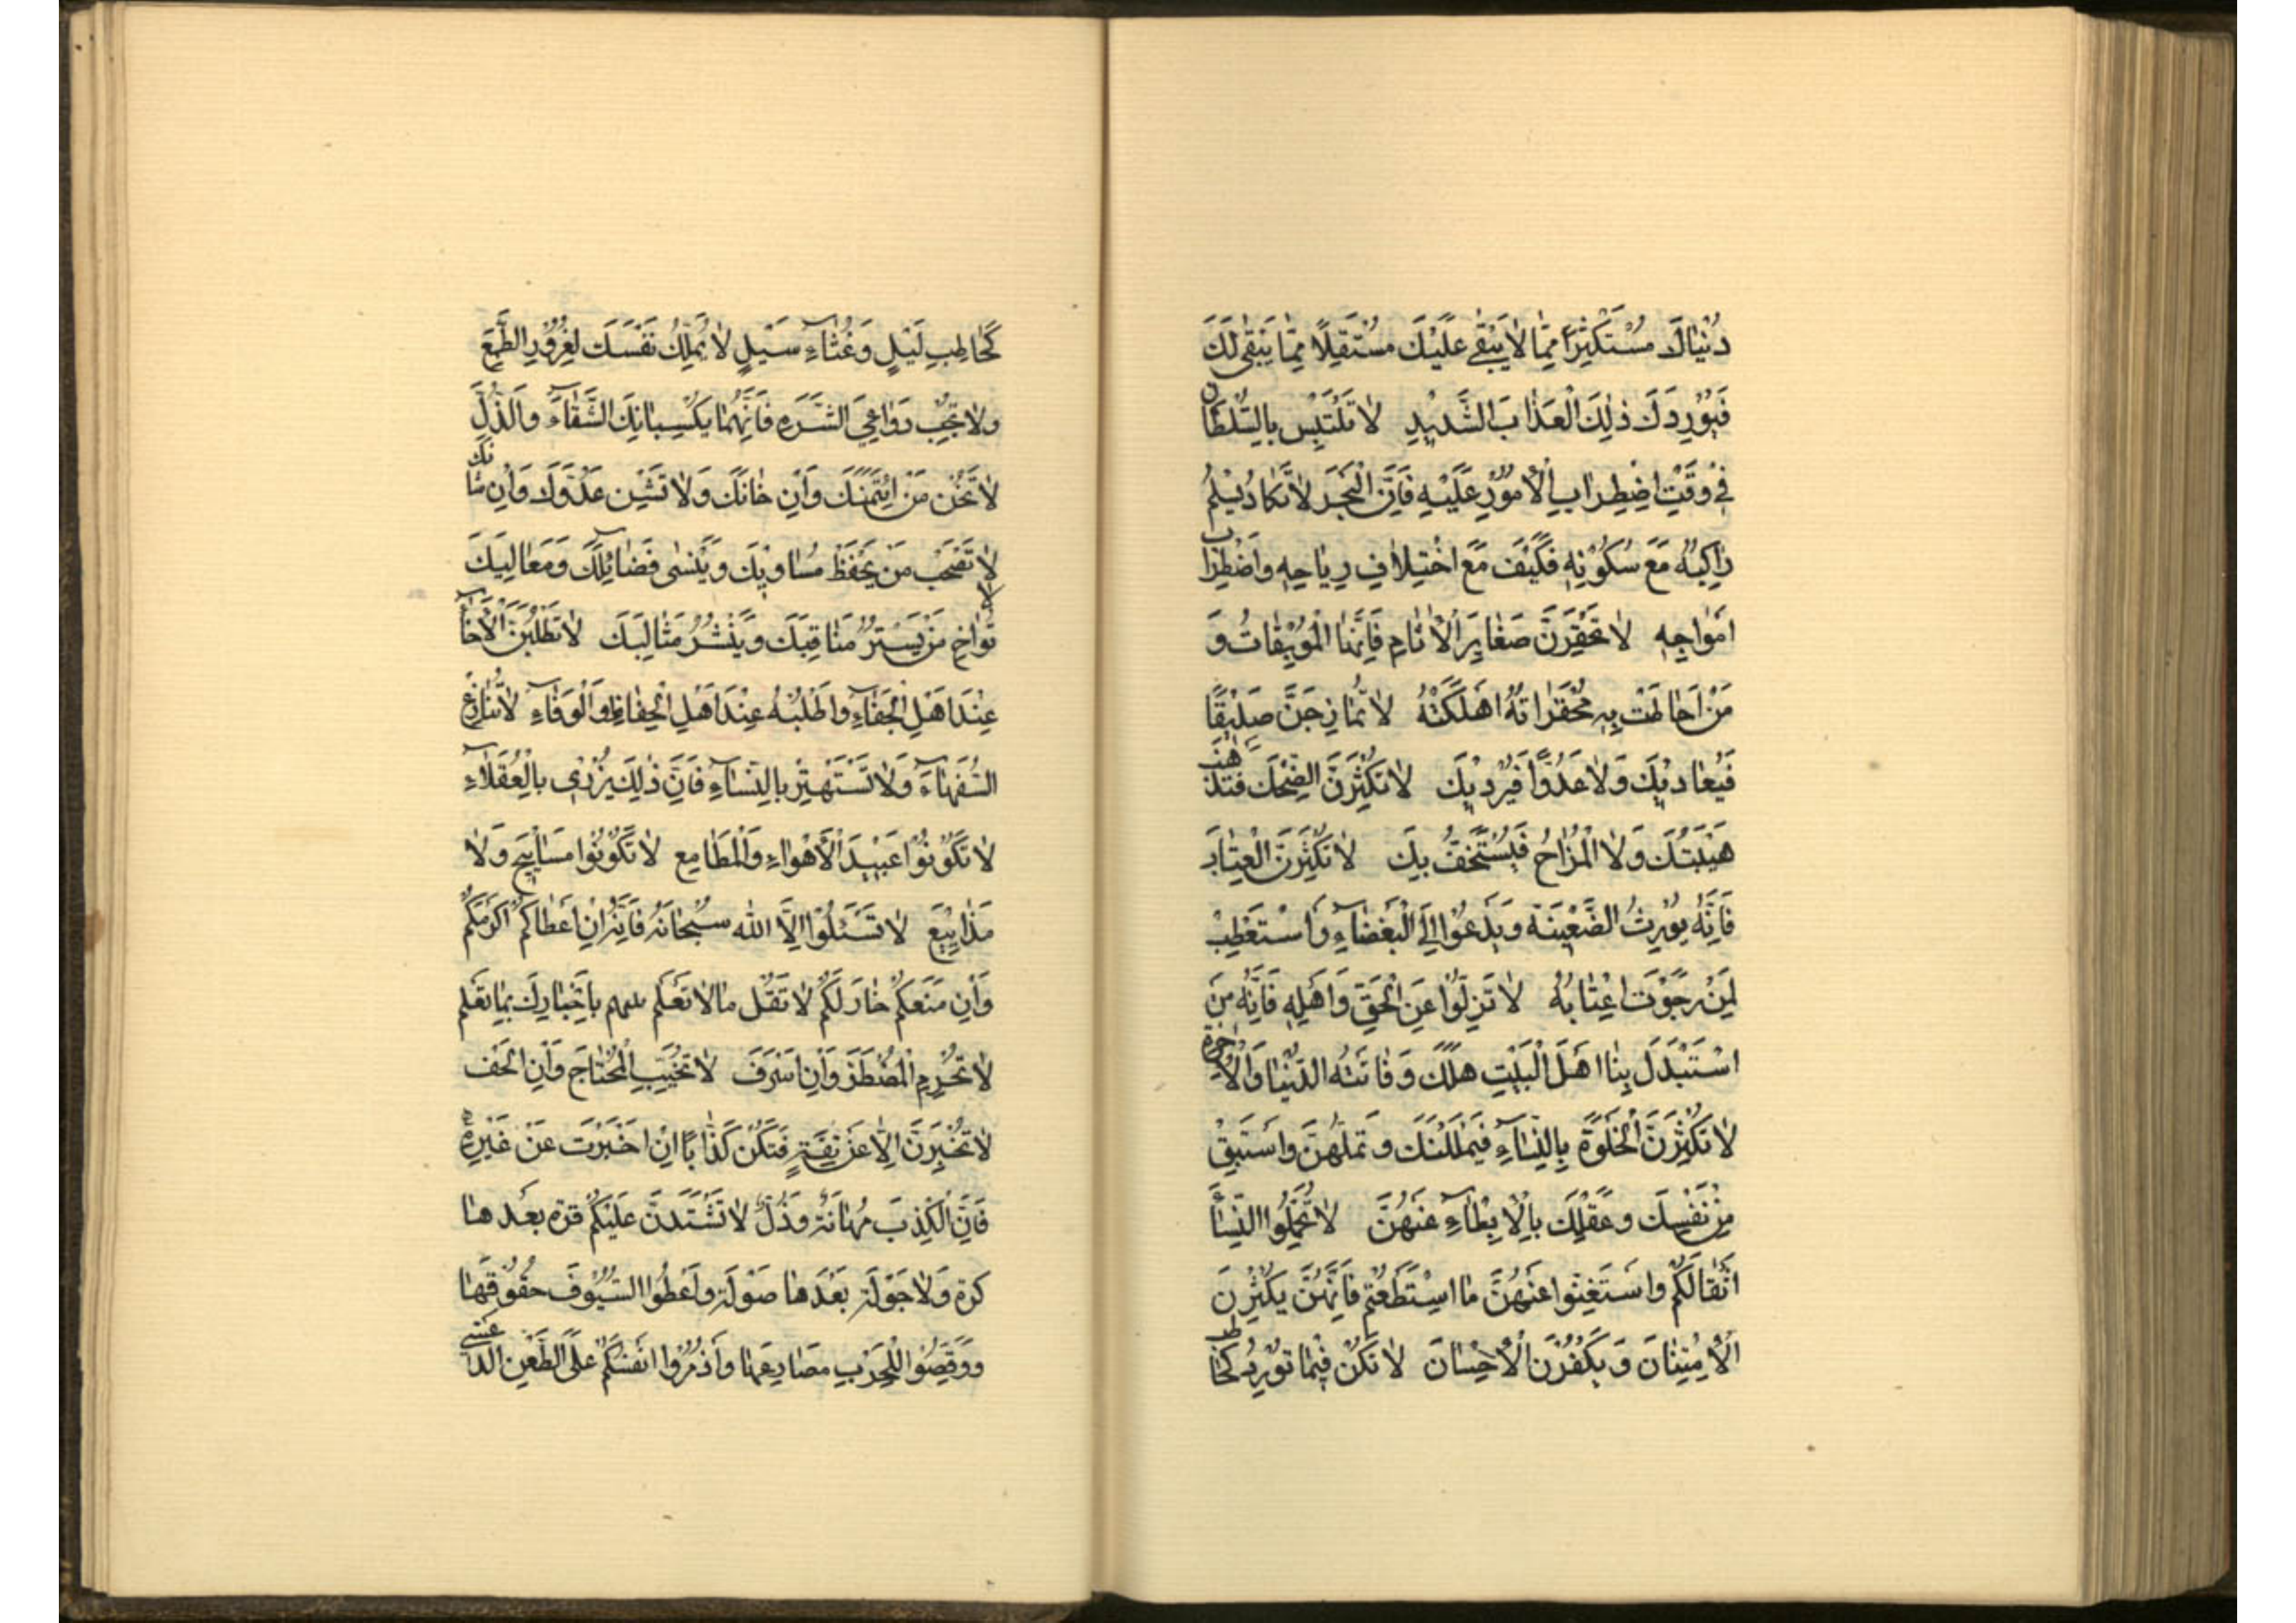 دُنْيٰاكَ مُسْتَكْثِرًا مِمّٰا لاٰ يَبْقٰى عَلَيْكَ مُسْتَقِلًا مِمّٰا يَبْقٰى لَكَ
فَيُوْرِدَكَ ذٰلِكَ الْعَذٰابَ الشَّدِيْدِ لاٰ تَلْتَبِسْ بِالسُّلْطٰانِ
فِيْ وَقْتِ اضْطِرٰابِ الْأُمُوْرِ عَلَيْهِ فَاِنَّ الْبَحْرَ لاٰ يَكٰادُ يَسْلَمُ
رٰاكِبُهُ مَعَ سُكُوْنِهِ فَكَيْفَ مَعَ اخْتِلاٰفِ رِيٰاحِهِ وَاضْطِرٰابِ
اَمْوٰاجِهِ لاٰ تَحْقِرَنَّ صَغٰايِرَ الْاٰثٰامِ فَاِنَّهَا الْمُوْبِقٰاتُ وَ
مَنْ اَحٰاطَتْ بِهِ مُحَقَّرٰاتُهُ اَهْلَكَتْهُ لاٰ تُمٰازِحَنَّ صَدِيْقًا
فَيُعٰادِيْكَ وَلاٰ عَدُوًّا فَيُرْدِيْكَ لاٰ تُكْثِرَنَّ الضِّحْكَ فَتَذْهَبَ
هَيْبَتُكَ وَلاَ الْمُزٰاحُ فَيُسْتَخَفُّ بِكَ لاٰ تُكْثِرَنَّ الْعِتٰابَ
فَاِنَّهُ يُوْرِثُ الضَّغِيْنَةَ وَيَدْعُوْا اِلَى الْبَغْضٰاءِ وَاسْتَعْطِبْ
لِمَنْ رَجَوْتَ اِعْتٰابُهُ لاٰ تَزِلُّوْا عَنِ الْحَقِّ وَاَهْلِهِ فَاِنَّهُ مَنِ
اسْتَبْدَلَ بِنٰا اَهْلَ الْبَيْتِ هَلَكَ وَفٰاتَتْهُ الدُّنْيٰا وَالْاٰخِرَةِ
لاٰ تُكْثِرَنَّ الْخَلْوَةَ بِالنِّسٰاءِ فَيَمْلَلْنَكَ وَتَمَلَّهُنَّ وَاسْتَبِقْ
مِنْ نَفْسِكَ وَعَقْلِكَ بِالْاِبْطٰاءِ عَنْهُنَّ لاٰ تُحَمِّلُوا النِّسٰآءَ
اَثْقٰالَكُمْ وَاسْتَغْنُوا عَنْهُنَّ مَا اسْتَطَعْتُمْ فَاِنَّهُنَّ يُكْثِرْنَ
الْاِمْتِنٰانَ وَيَكْفُرْنَ الْأِحْسٰانَ لاٰ تَكُنْ فِيْمٰا تُوْرِدُ كَحٰاطِبِ
كَحٰاطِبِ لَيْلٍ وَغُثٰاءِ سَيْلٍ لاٰ تُمَلِّكْ نَفْسَكَ لِغُرُوْرِ الطَّمَعِ
وَلاٰ تُجِبْ دَوٰاعِيَ الشَّرَهِ فَاِنَّهُمٰا يَكْسِبٰانِكَ الشَّقٰاءَ وَالذُّلَّ
لاٰ تَخُنْ مَنِ ائْتَمَنَكَ وَاِنْ خٰانَكَ وَلاٰ تَشِنْ عَدُوَّكَ وَاِنْ شٰانَكَ
لاٰ تَصْحَبْ مَنْ يَحْفَظُ مَسٰاوِيْكَ وَيَنْسٰى فَضٰائِلَكَ وَمَعٰالِيَكَ
لا تُوٰاخِ مَنْ يَسْتُرُ مَنٰاقِبَكَ وَيَنْشُرُ مَثٰالِبَكَ لاٰ تَطْلُبَنَّ الْأِخٰاءَ
عِنْدَ اَهْلِ الْجَفٰاءِ وَاطْلُبْهُ عِنْدَ اَهْلِ الْحِفٰاظِ وَالْوَفٰاءِ لاٰ تُنٰازِعِ
السُّفَهٰاءَ وَلاٰ تَسْتَهْتِرْ بِالنِّسٰاءِ فَاِنَّ ذٰلِكَ يُزْرِيْ بِالْعُقَلاٰءِ
لاٰ تَكُوْنُوْا عَبِيْدَ الْأَهْوٰاءِ وَالْمَطٰامِعِ لاٰ تَكُوْنُوا مَسٰايِيْحَ وَلاٰ
مَذٰايِيْعَ لاٰ تَسْئَلُوْا اِلاَّ اللهَ سُبْحٰانَهُ فَاِنَّهُ اِنْ اَعْطٰاكُمْ اَكْرَمَكُمْ
وَاِنْ مَنَعَكُمْ خٰارَ لَكُمْ لاٰ تَقُلْ مٰا لاٰ تَعْلَمُ بِاِخْبٰارِكَ بِمٰا تَعْلَمُ
لاٰ تَحْرِمِ الْمُضْطَرَّ وَاِنْ اَسْرَفَ لاٰ تُخَيِّبِ الْمُحْتٰاجَ وَاِنْ اَلْحَفَ
لاٰ تُخْبِرَنَّ اِلاّٰ عَنْ ثِقَةٍ فَتَكُنْ كَذّٰابًا اِنْ اَخْبَرْتَ عَنْ غَيْرِهِ
فَاِنَّ الْكِذْبَ مُهٰانَةٌ وَذُلٌّ لاٰ تَشْتَدَّنَّ عَلَيْكُمْ فرة بَعْدَهٰا
كرة وَلاٰ جَوْلَة بَعْدَهٰا صَوْلَة وَاَعْطُوا السُّيُوْفَ حُقُوْقَهٰا
وَوَقِّصُوْا لِلْحَرْبِ مَصٰارِعَهٰا وَاَذْمِرُوا اَنْفُسَكُمْ عَلَى الطَّعْنِ الدَّعْسِيِّ